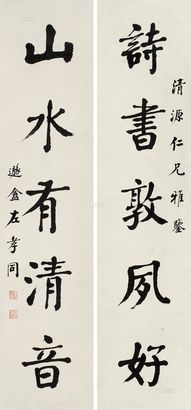 清源仁兄雅鑒
詩書敦夙好
山水有清音
遯盦左孝同